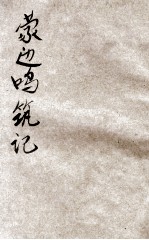 蒙边鸣筑记